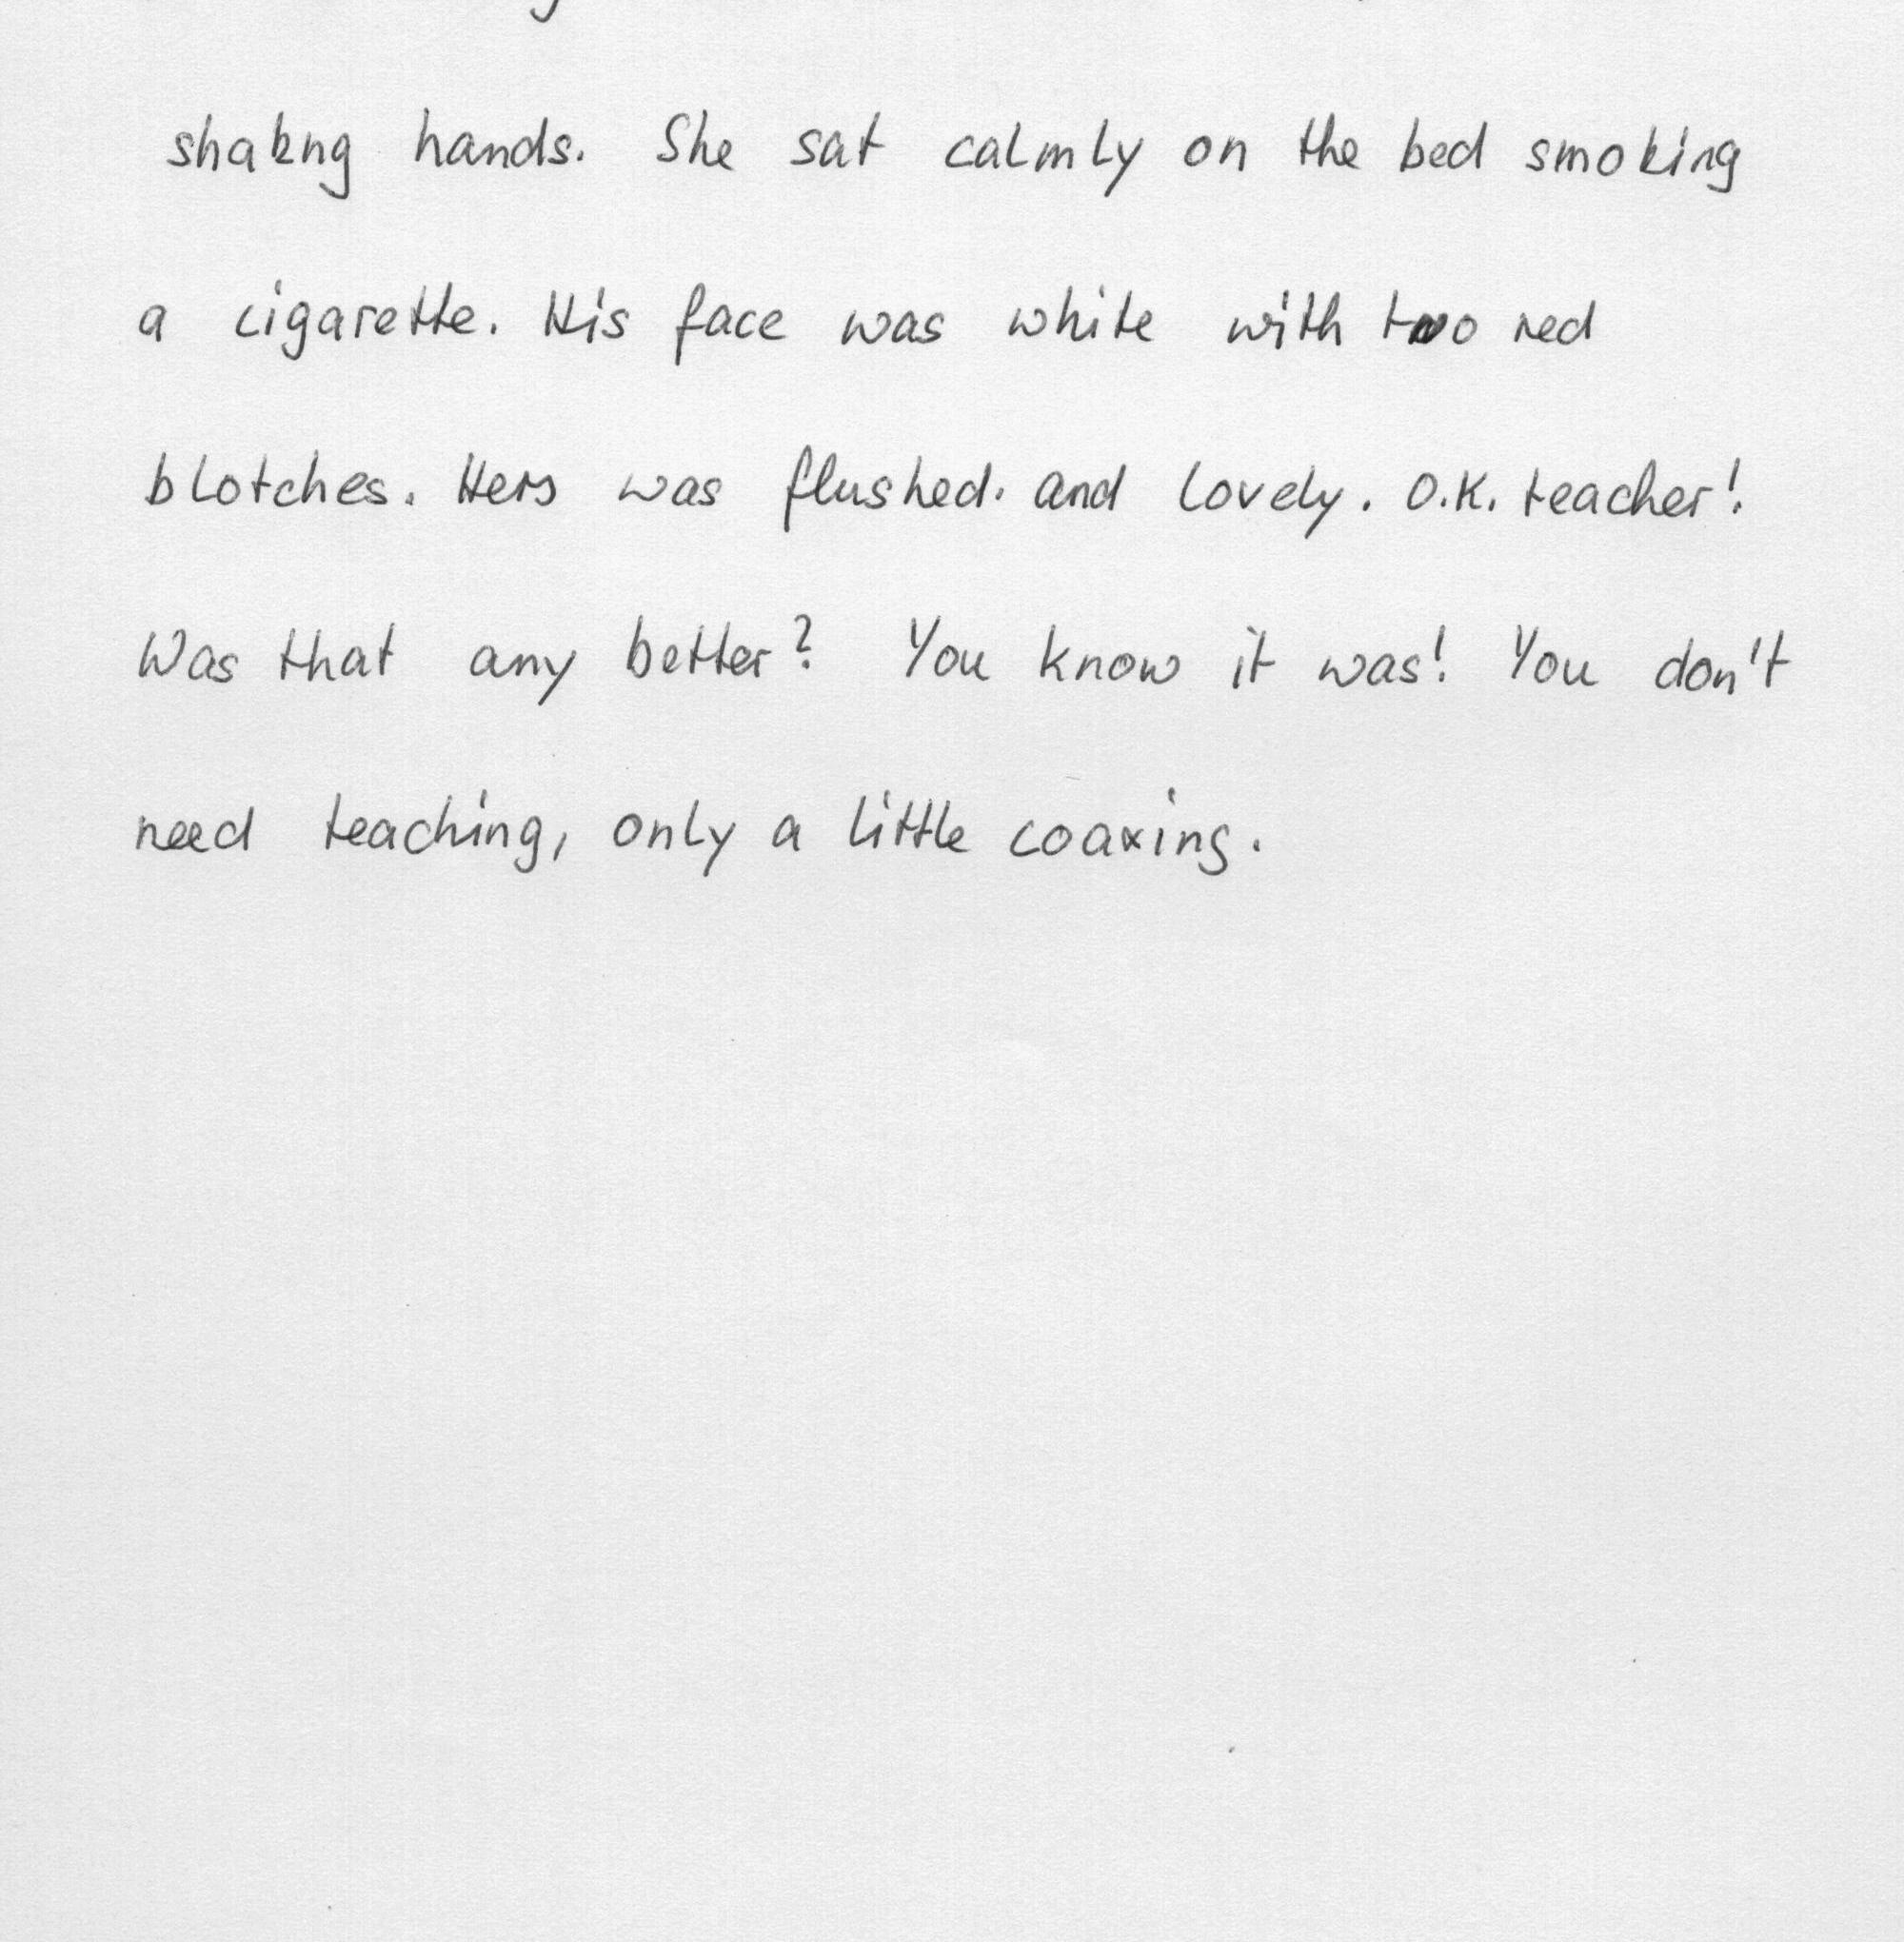 shakng hands. She sat calmly on the bed smoking
a cigarette. His face was white with two red
blotches. Hers was flushed. and lovely. O.K. teacher!
Was that any better? You know it was! You don't
need teaching, only a little coaxing.